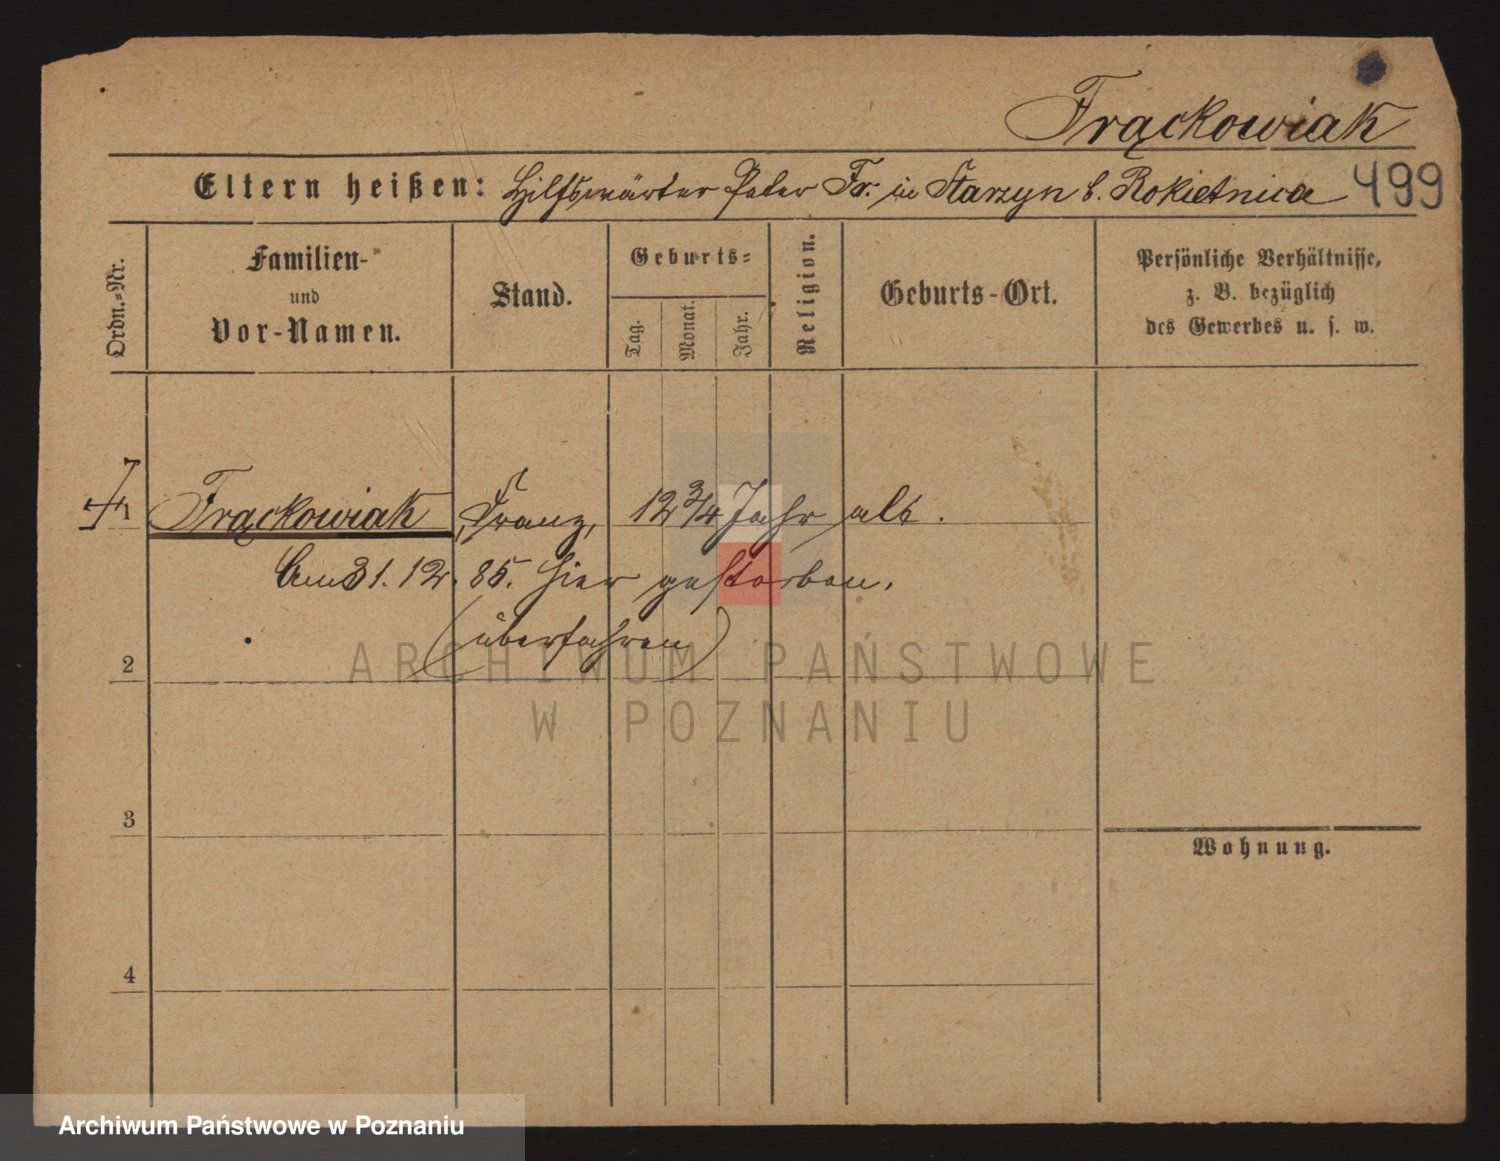 Frąckowiak
Eltern heißen: Hilfswärter Peter Fr. in Starzyn b. Rokietnica 499
Ordn.-Nr.
Familien-
und
Vor-Namen.
Stand.
Geburts-
Tag.
Monat.
Jahr.
Religion.
Geburts-Ort.
Persönliche Verhältnisse,
z. B. bezüglich
des Gewerbes u. s. w.
1 Frąckowiak, Franz, 12 3/4 Jahr alt.
Am 31. 12. 85. hier gestorben.
(überfahren)
2
3
4
Wohnung.
ARCHIWUM PAŃSTWOWE
W POZNANIU
Archiwum Państwowe w Poznaniu